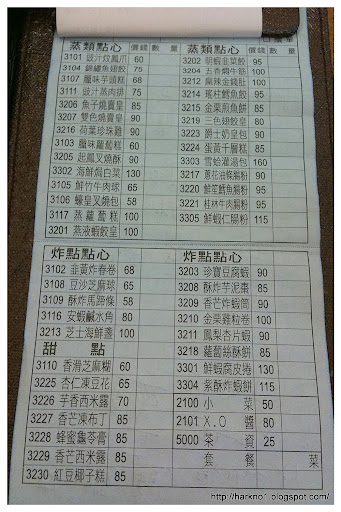 蒸類點心 價錢 數 量
3101 豉汁炆鳳爪 60
3104 錦繡魚翅餃 75
3107 臘味芋頭糕 68
3111 豉汁蒸肉排 75
3206 魚子燒賣皇 80
3207 雙色燒賣皇 90
3216 荷葉珍珠雞 90
3103 臘味蘿蔔糕 60
3205 起鳳叉燒酥 90
3202 海鮮焗白菜 130
3105 鮮竹牛肉球 65
3106 蠔皇叉燒包 58
3117 蒸蘿蔔糕 100
3201 燕液蝦餃皇 100
蒸類點心 價錢 數 量
3202 明蝦韭菜餃 95
3204 五香燜牛筋 100
3212 麻辣金錢肚 100
3214 瑤柱鱈魚餃 90
3215 金栗煎魚餅 80
3219 三色翅餃 80
3223 爵士奶皇包 90
3224 蛋黃千層糕 85
3303 雪蛤灌湯包 160
3217 蔥花油條腸粉 90
3220 鮮茄鱈魚腸粉 90
3221 桂林牛肉腸粉 90
3305 鮮蝦仁腸粉 115
炸點點心
3102 韭黃炸春卷 68
3108 豆沙芝麻球 65
3109 酥炸馬蹄條 58
3116 安蝦鹹水角 80
3213 芝士海鮮盞 100
甜 點
3110 香滑芝麻糊 60
3225 杏仁凍豆花 65
3226 芋香西米露 70
3227 香芒凍布丁 85
3228 蜂蜜龜苓膏 85
3229 香芒西米露 85
3230 紅豆椰子糕 85
炸點點心
3203 珍寶豆腐蝦 90
3208 酥炸芋泥棗 85
3209 香芒炸蝦筒 90
3210 金栗雞粒卷 100
3211 鳳梨杏片蝦 90
3218 蘿蔔絲酥餅 85
3301 鮮蝦腐皮捲 130
3304 紫酥炸蝦餅 115
2100 小 菜 50
2101 X.O 醬 80
5000 茶 資 25
套 餐 菜
http://harkno1.blogspot.com/